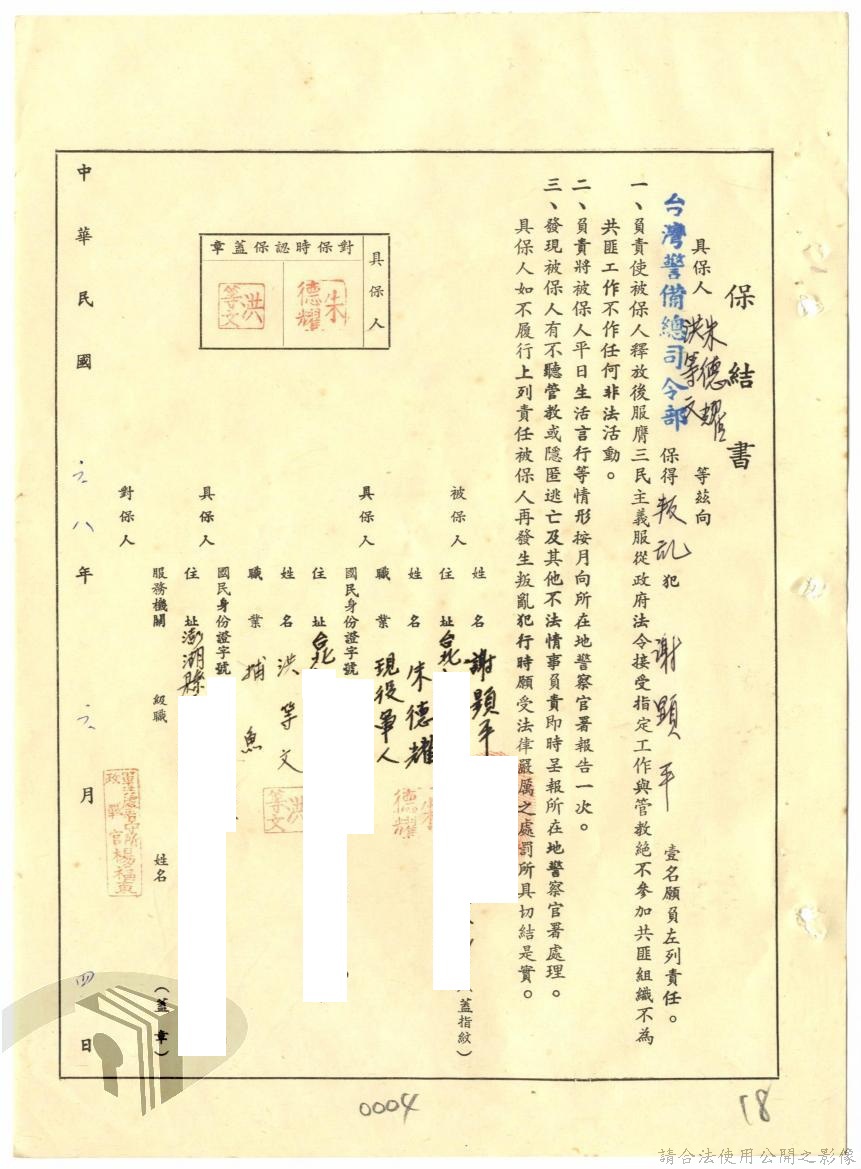 保結書
具保人 朱德耀 洪等文 等茲向
台灣警備總司令部 保得 叛乱 犯 謝顕平 壹名願負左列責任。
一、負責使被保人釋放後服膺三民主義服從政府法令接受指定工作與管教絕不參加共匪組織不為
共匪工作不作任何非法活動。
二、負責將被保人平日生活言行等情形按月向所在地警察官署報告一次。
三、發現被保人有不聽管教或隱匿逃亡及其他不法情事負責即時呈報所在地警察官署處理。
具保人如不履行上列責任被保人再發生叛亂犯行時願受法律嚴厲之處罰所具切結是實。
具保人
對保時認保蓋章
朱德耀
洪等文
被保人
姓名 謝顕平
蓋指紋)
住址 台北
具保人
姓名 朱德耀
朱德耀
職業 現役軍人
國民身份證字號
住址 台北
具保人
姓名 洪等文
洪等文
職業 捕魚
國民身份證字號
住址 澎湖縣
對保人
服務機關 級職 姓名 (蓋章)
中華民國 六八年 六月 四日
0004
18
請合法使用公開之影像